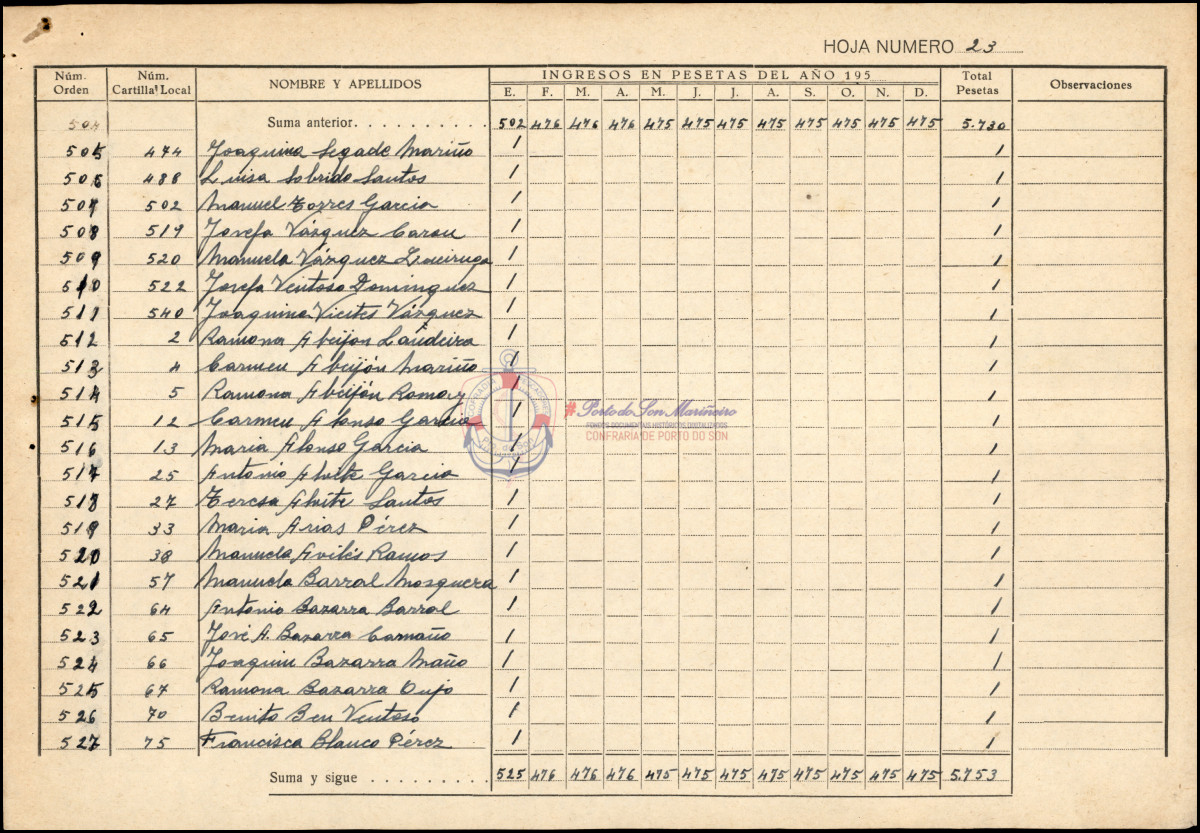 HOJA NUMERO 23
Núm. Orden | Núm. Cartillaª Local | NOMBRE Y APELLIDOS | INGRESOS EN PESETAS DEL AÑO 195 | Total Pesetas | Observaciones
E. F. M. A. M. J. J. A. S. O. N. D.
504 Suma anterior. 502 476 476 476 475 475 475 475 475 475 475 475 5.730
505 474 Joaquina Segade Mariño 1 1
506 488 Luisa Sobrido Santos 1 1
507 502 Manuel Torres Garcia 1 1
508 519 Josefa Vázquez Carou 1 1
509 520 Manuela Vázquez 1 1
510 522 Josefa Ventoso Dominguez 1 1
511 540 Joaquina Vieites Vázquez 1 1
512 2 Ramona Abeijon Laudeira 1 1
513 4 Carmen Abeijón Mariño 1 1
514 5 Ramona Abeijón Romay 1 1
515 12 Carmen Afonso Garcia 1 1
516 13 Maria Afonso Garcia 1 1
517 25 Antonio Alvite Garcia 1 1
518 27 Teresa Alvite Santos 1 1
519 33 Maria Arias Pérez 1 1
520 38 Manuela Avilés Ramos 1 1
521 57 Manuela Barral Mosquera 1 1
522 64 Antonio Bazarra Barral 1 1
523 65 José A. Bazarra Camaño 1 1
524 66 Joaquin Bazarra Maño 1 1
525 67 Ramona Bazarra Oujo 1 1
526 70 Benito Ben Ventoso 1 1
527 75 Francisca Blanco Pérez 1 1
Suma y sigue 525 476 476 476 475 475 475 475 475 475 475 475 5.753
#Porto do Son Mariñeiro
FONDOS DOCUMENTAIS HISTÓRICOS DIGITALIZADOS
CONFRARIA DE PORTO DO SON